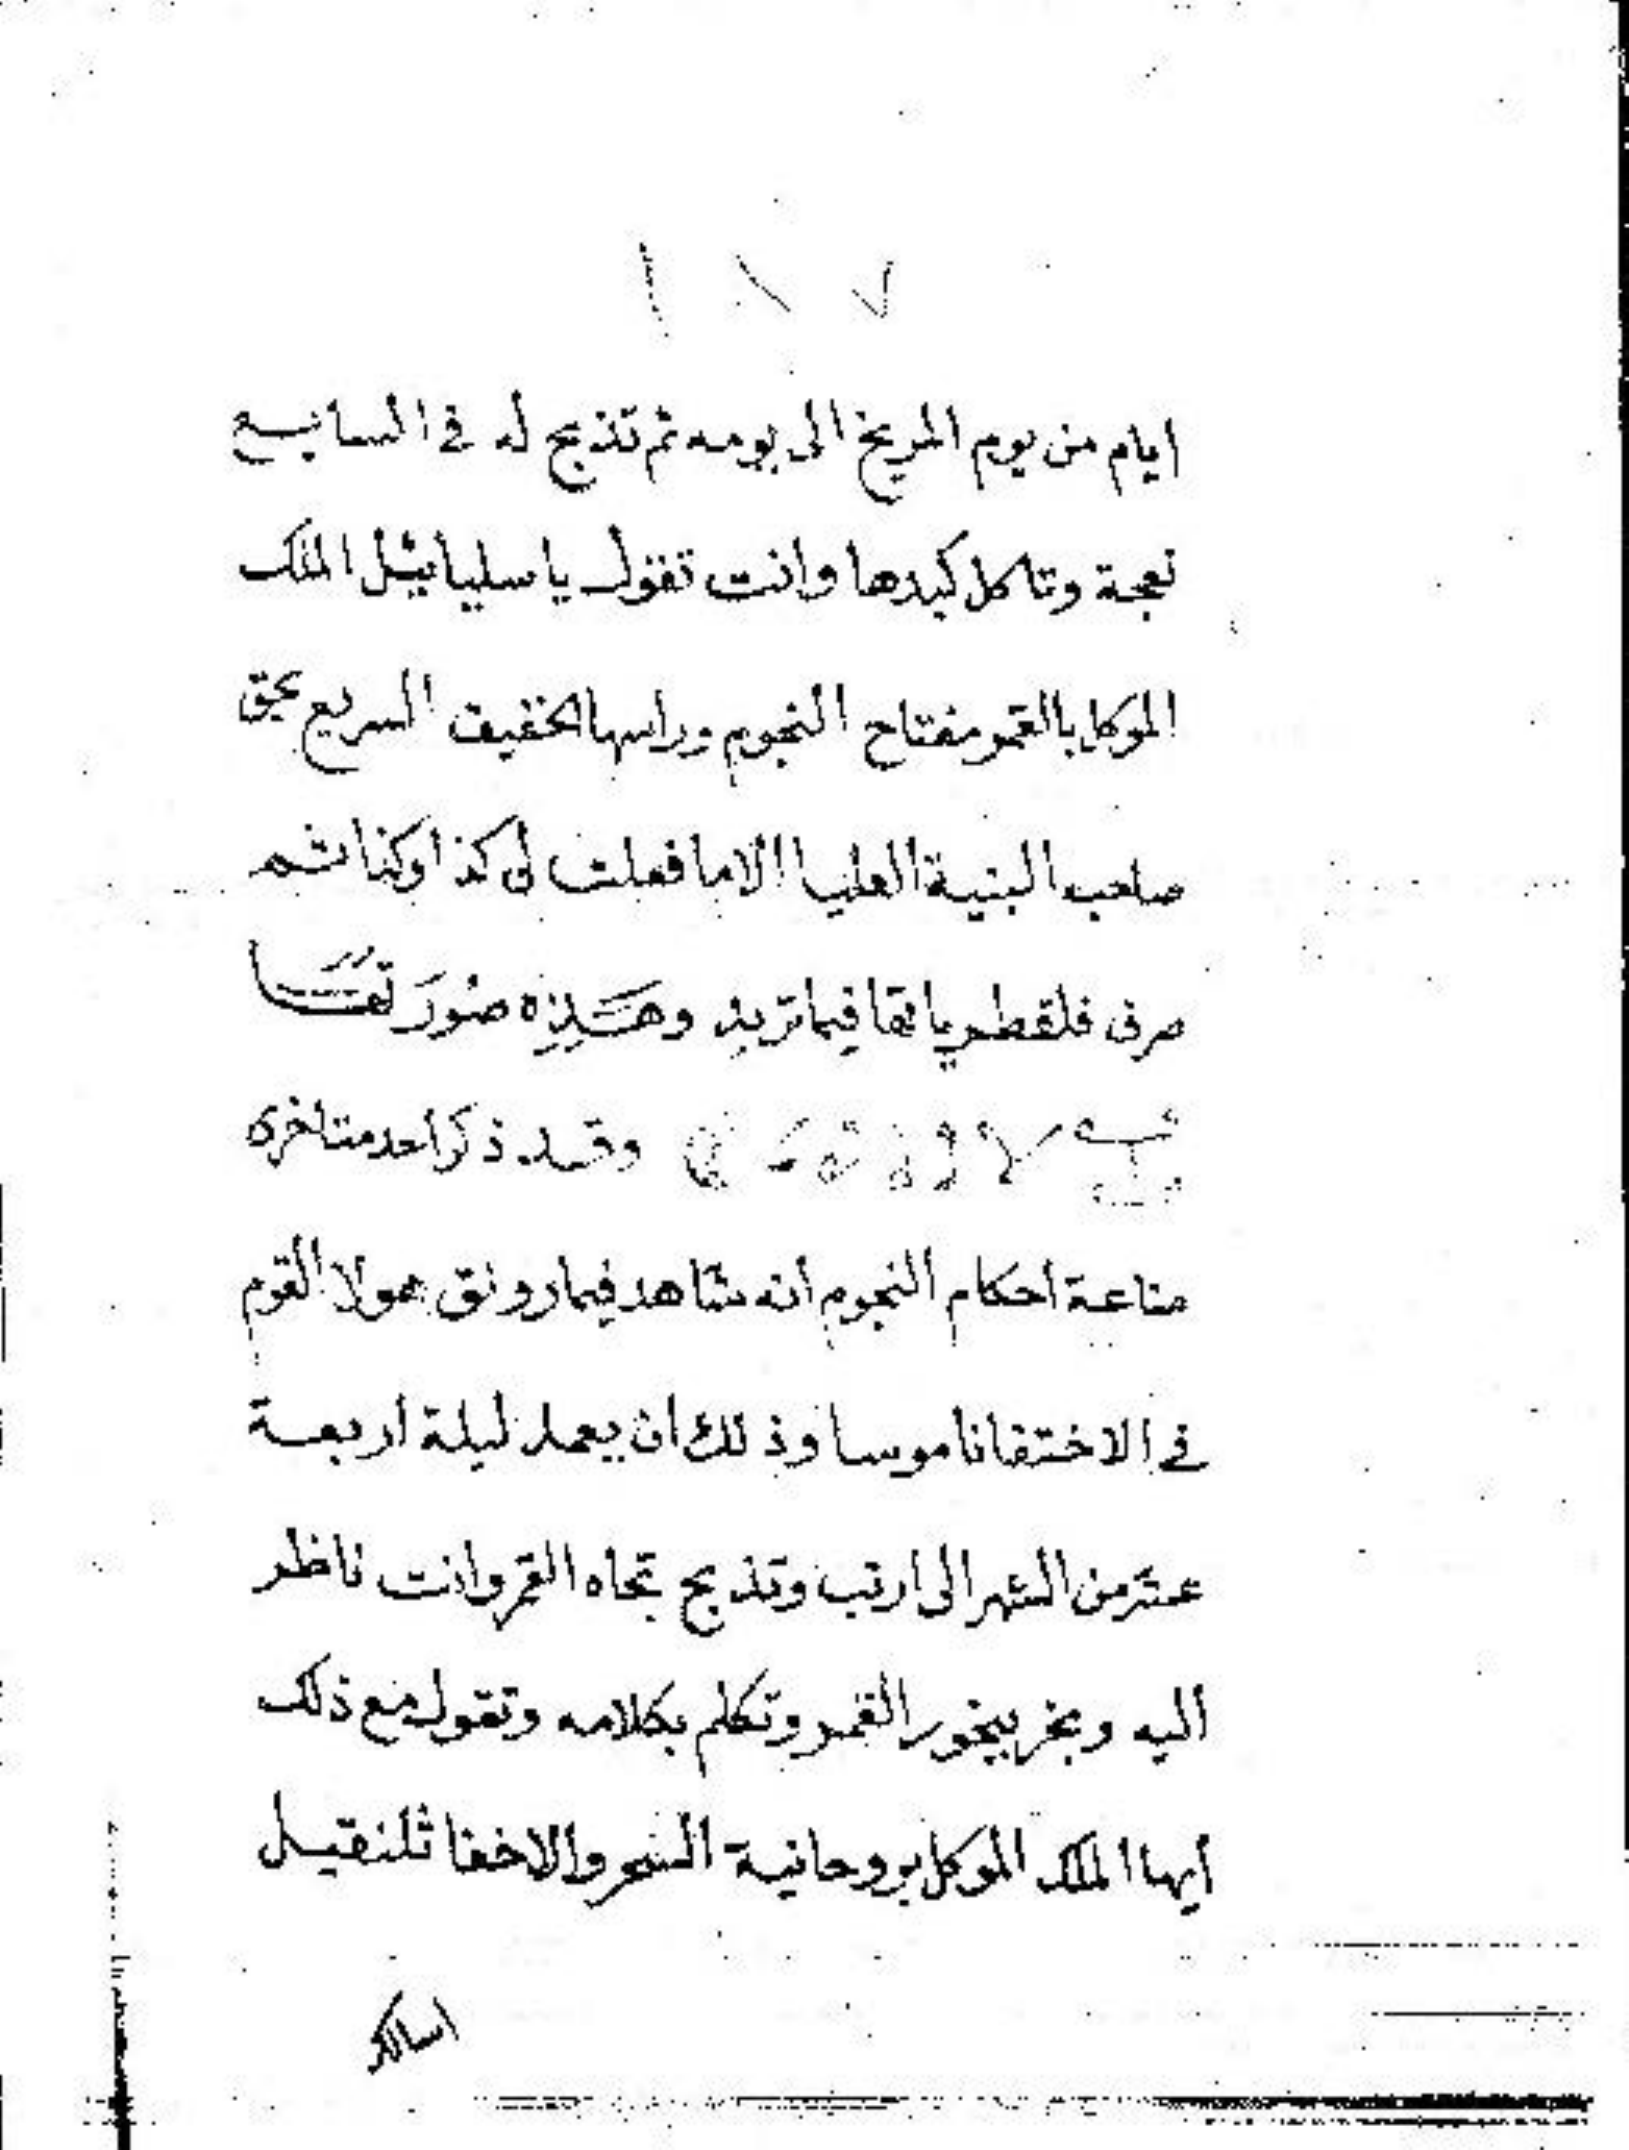 ايام من يوم المريخ الى يومه ثم تذبح له فى السابع
نعجة وتاكل كبدها وانت تقول يا سلياييل الملك
الموكل بالقمر مفتاح النجوم وراسها الخفيف السريع بحق
صاحب البنية العليا الا ما فعلت لى كذا وكذا ثم
فيما تريد وهذه صورتها
وقد ذكر احد متاخرى
صناعة احكام النجوم انه شاهد القوم
فى الاختفا ناموسا وذلك ان يعمد ليلة اربعة
عشر من الشهر الى ارنب وتذبح تجاه القمر وانت ناظر
اليه وبخر ببخور القمر وتكلم بكلامه وتقول مع ذلك
ايها الملك الموكل بروحانية السحر والاخفا
اسالك